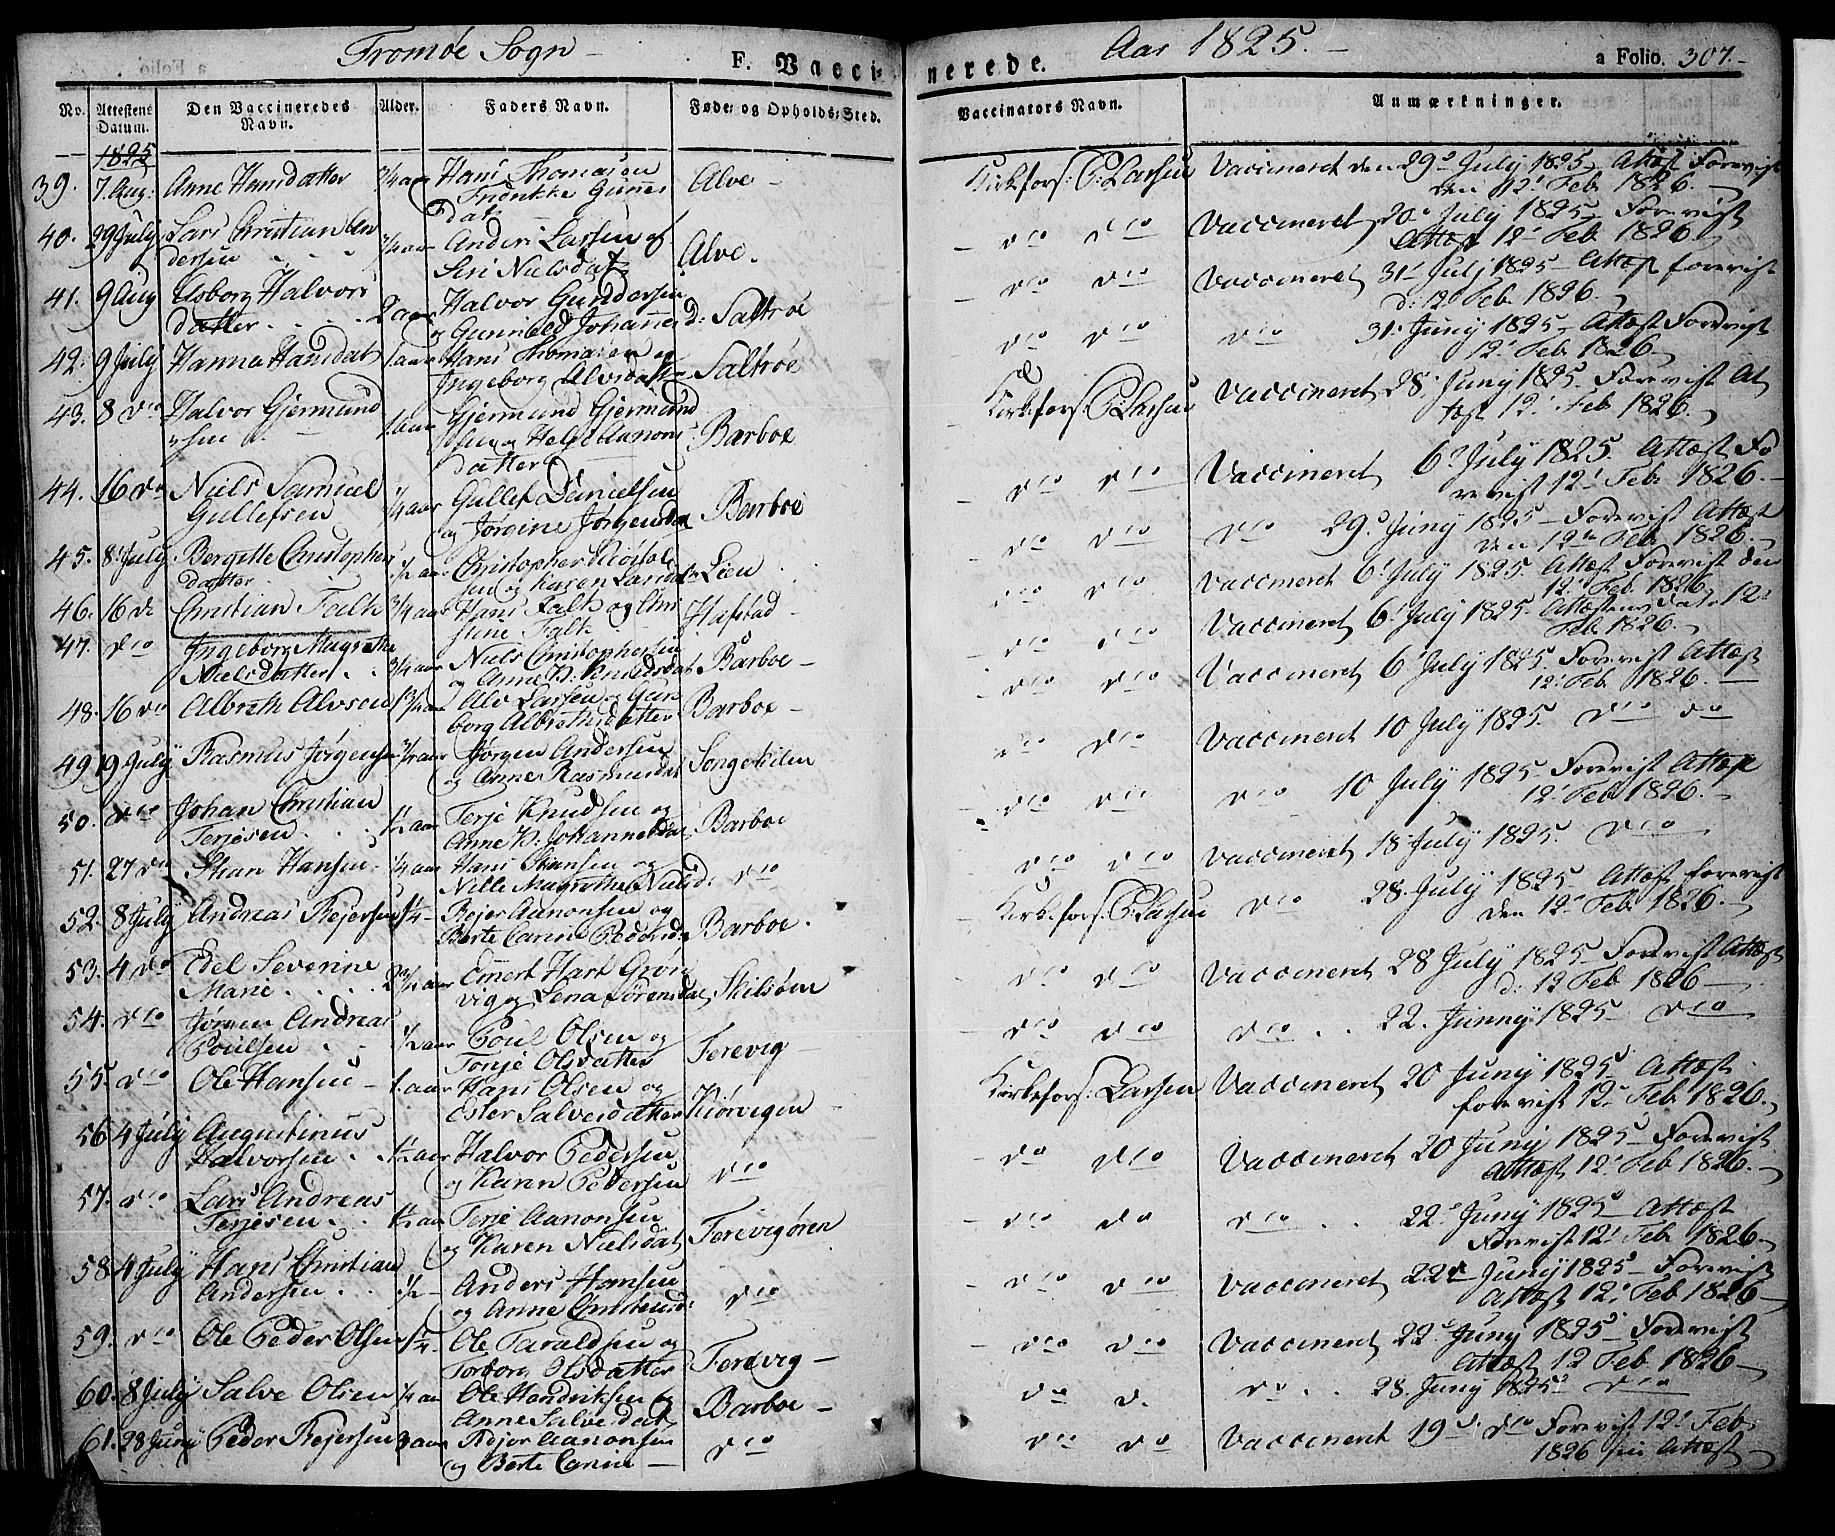 Tromøe Sogn – F. Vaccinerede. Aar 1825. – a Folio. 307. –
No. Attestens Datum. Den Vaccineredes Navn. Alder. Faders Navn. Føde- og Opholds-Sted. Vaccinators Navn. Anmærkninger.
1825
39. 7. Aug: Anne Hansdatter 3/4 aar Hans Thomasen Alve – Kirkfors: Larsen Vaccineret den 29. July 1825 – Attest Forevist
den 12. Feb. 1826. –
40. 29 July Lars Christian An
dersen 3/4 aar Anders Larsen
Siri Nielsdat Alve. – do do Vaccineret 20. July 1825 – Forevist
Attest 12. Feb 1826
41. 9 Aug Asborg Halvors
datter 2 aar Halvor Gundersen
og Gunnild Johannesd: Saltrøe – do do Vaccineret 31. July 1825 – Attest forevist
d: 12 Feb. 1826.
42. 9 July Hanna Hansdat 1. aar Hans Thomasen og
Ingeborg Alvsdatter Saltrøe do do do 31. Juny 1825 – Attest Forevist
12. Feb 1826.
43. 8 do Halvor Gjermund
sen 1. aar Gjermund Gjermund
sen og Helge Aanons
datter Barboe Kirkefors: Larsen Vaccineret 28. Juny 1825 – Forevist At
test 12. Feb 1826.
44. 16 do Niels Samuel
Gullefsen 1/4 aar Gullef Danielsen
og Jørgine Jørgensda Barboe – do do Vaccineret 6. July 1825. Attest Fo
revist 12. Feb 1826. –
45. 8. July Bergitte Christopher
datter 1/2 aar Christopher
sen og Karen Larsdat Lien – do do do 29. Juny 1825 – Forevist Attest
den 12te Feb. 1826.
46. 16 do Christian Falk 3/4 aar Hans Falk og Chri
stine Falk Hafstad – do do Vaccineret 6. July 1825. Attest Forevist den
12. Feb. 1826
47. do Ingeborg Magrethe
Nielsdatter 3/4 aar Niels Christophersen
og Anne Barboe – do do Vaccineret 6. July 1825 – Attestens dato 12.
Feb. 1826.
48. 16 do Albreth Alvsen 1 3/4 aar Alv Larsen og Gun
borg Albrethsdatter Barboe – do do Vaccineret 6. July 1825. Forevist Attest
12. Feb 1826. –
49. 19 July Rasmus Jørgensen 3/4 aar Jørgen Andersen
og Anne Rasmusdat Songekilen do do Vaccineret 10 July 1825. do do
50. do Johan Christian
Terjesen 1/2 aar Terje Knudsen og
Anne Barboe – do do do 10 July 1825 – Forevist Attest
12. Feb 1826. –
51. 27 do Hansen 1/4 aar Hans og
Nille Magrethe Nielsd: do do do Vaccineret 18 July 1825. do
52. 8 July Andreas Rejersen 1/4 – Rejer Aanonsen og
Berte Carine Pedersda Barboe. Kirkefors: Larsen do 28. July 1825 – Attest forevist
den 12. Feb 1826. –
53. 4 do Edel Severine
Marie 2 3/4 aar
og Lena Sørensdat Skilsøen – do do Vaccineret 28 July 1825 – Forevist Attest
d: 12 Feb. 1826 –
54. do Jørgen Andreas
Poulsen 1/2 aar Poul Olsen og
Tonje Olsdatter Terevig – – do do do 22. Junny 1825 – do
55. do Ole Hansen – 1. aar Hans Olsen og
Ester Salvesdatter Kiørvigen Kirkefors: Larsen Vaccineret 20 Juny 1825 – Attest
forevist 12. Feb 1826. –
56 4 July Augustinus
Halvorsen 1/2 aar Halvor Pedersen
og Karen Pedersen do – do do Vaccineret 20 Juny 1825 – Forevist
Attest 12. Feb 1826. –
57. do Lars Andreas
Terjesen 1/2 aar Terje Aanonsen
og Karen Nielsdat Terevigøren – do do do 22. Juny 1825 – Attest
Forevist 12. Feb 1826 –
58 4 July Hans Christian
Andersen 1/2 – Anders Hansen
og Anne do – do do Vaccineret 22 Juny 1825 – Forevist
Attest 12. Feb 1826 –
59. do Ole Peder Olsen Ole Taraldsen og
Torborg Olsdatter Terevig – do do Vaccineret 22. Juny 1825 – Forevist
Attest 12 Feb 1826 –
60. 8 July Salve Olsen 1/4 aar Ole Hendriksen og
Anne Salvesdat Barboe – do d. do 28. Juny 1825 do
61. 28 Juny Peder Rejersen 3 aar Rejer Aanonsen
og Berte Carine – do do do Vaccineret 19 do Forevist 12. Feb
1826 Attest